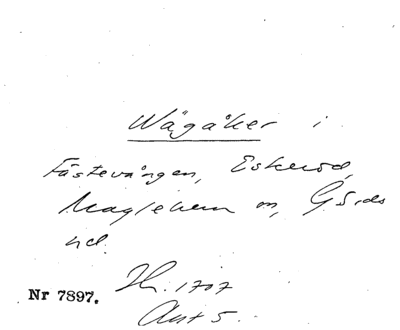 Wägåker i
Fästevången, Eskeröd,
Maglehem sn, Gärds
hd.
Nr 7897. Jb. 1707
Akt 5.